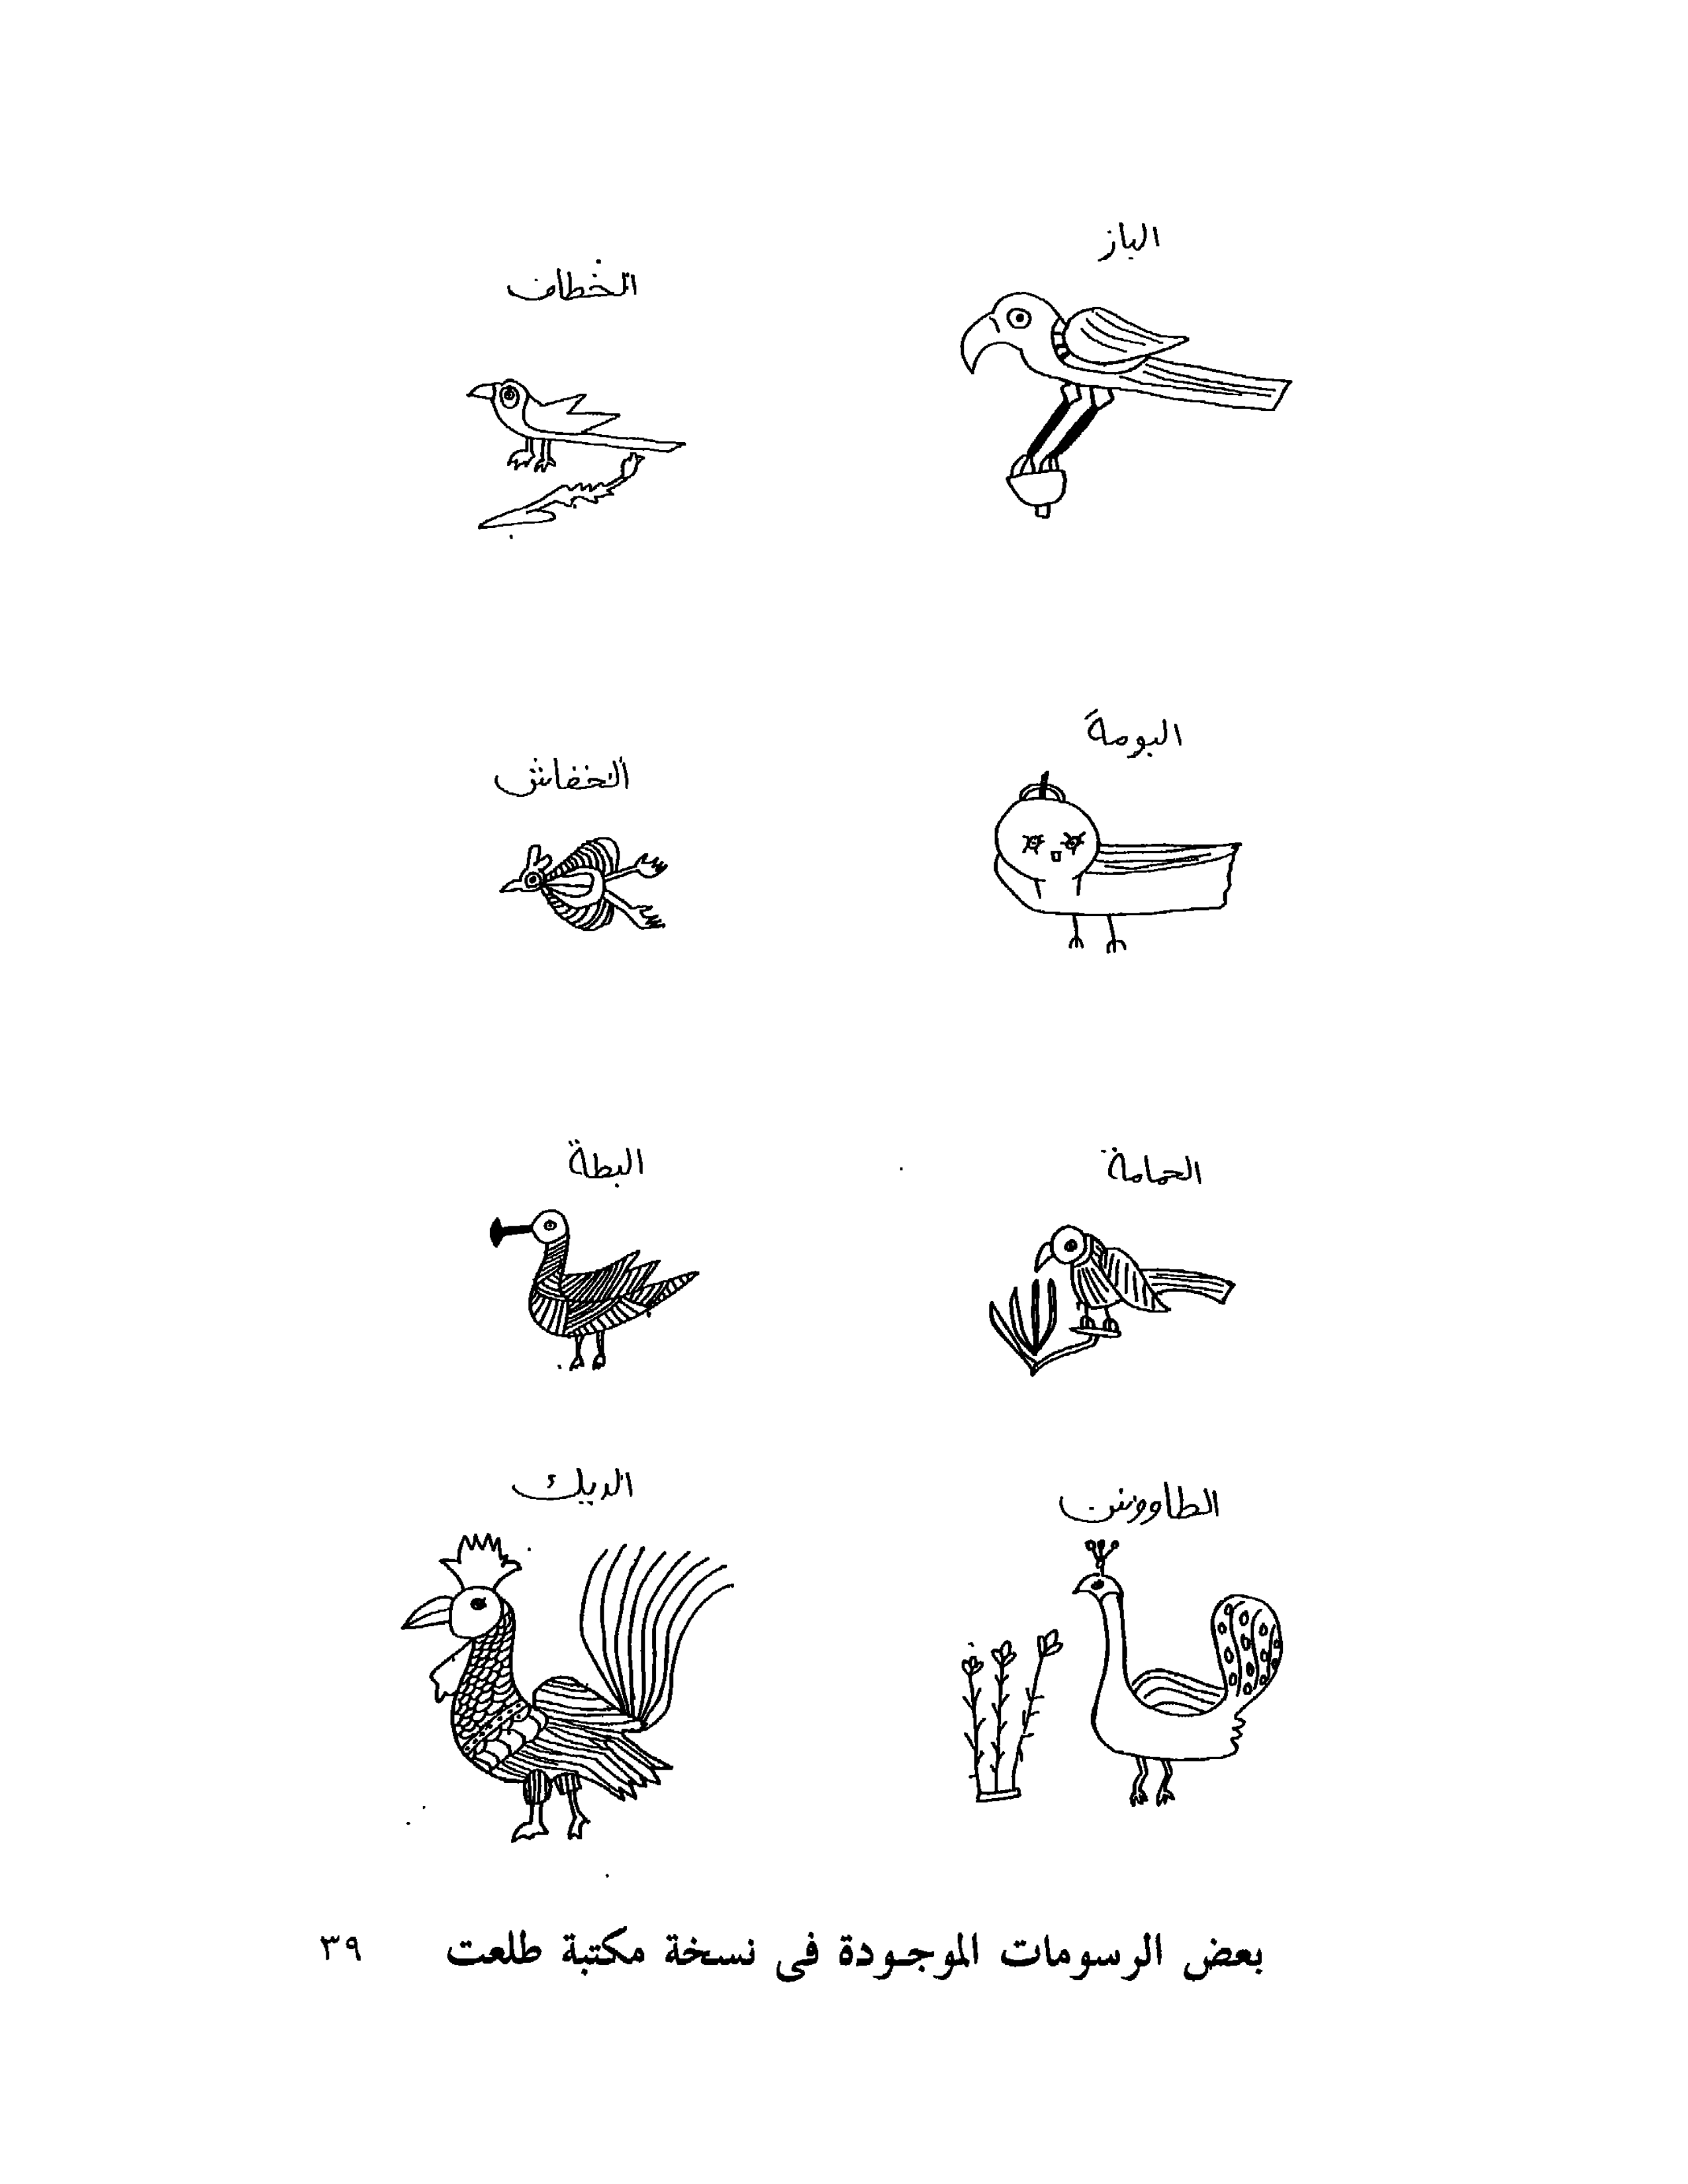 الباز
الخطاف
البومة
الخفاش
الحمامة
البطة
الطاووس
الديك
بعض الرسومات الموجودة فى نسخة مكتبة طلعت ٣٩